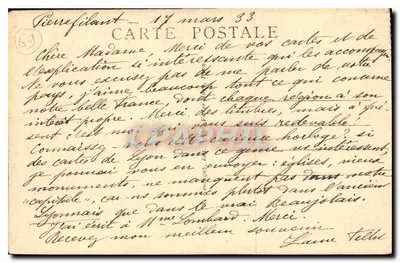 Pierrefilant - 17 mars 33
CARTE POSTALE
69
Chère Madame, Merci de vos cartes et de
l'explication si intéressante qui les accompagne
Ne vous excusez pas de me parler de votre
pays, j'aime beaucoup tout ce qui concerne
notre belle France, dont chaque région a son
intérêt propre. Merci des timbres, mais à pré-
sent c'est moi qui vous suis redevable!
Connaissez-vous cette curieuse horloge? si
des cartes de Lyon dans ce genre vs intéressent,
je pourrais vous en envoyer: églises, vieux
monuments, ne manquent pas dans notre
"capitale", car ns sommes plutôt dans l'ancien
Lyonnais que dans le vrai Beaujolais.
J'ai écrit à Mme Lombard. Merci.
Recevez mon meilleur souvenir